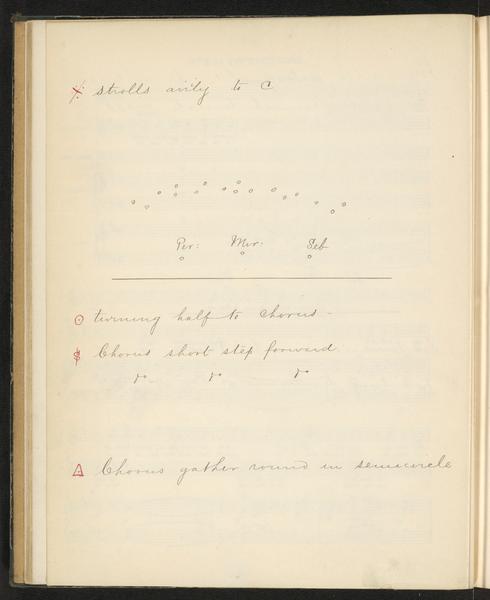 strolls airily to C
Per: Mer: Seb
turning half to Chorus -
Chorus short step forward
Chorus gather round in semicircle